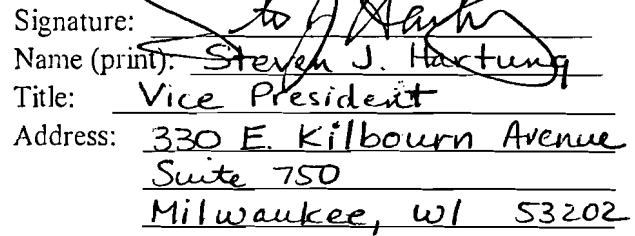 Signature:
Name (print): Steven J. Hartung
Title: Vice President
Address: 330 E. Kilbourn Avenue
Suite 750
Milwaukee, WI 53202